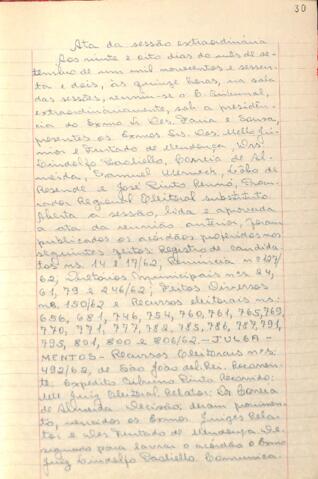 30
Ata da sessão extraordinária
Aos vinte e oito dias do mês de se-
tembro de um mil novecentos e sessen-
ta e dois, às quinze horas, na sala
das sessões, reuniu-se o E. Tribunal,
extraordinariamente, sob a presidên-
cia do Exmo Sr. Des. Faria e Sousa,
presentes os Exmos Srs. Des. Mello Jú-
nior e Furtado de Mendonça, Drs.
Lindolfo Padiello, Correia de Al-
meida, Samuel Werneck, Lobo de
Resende e José Pinto Renno, Procu-
rador Regional Eleitoral substituto.
Aberta a sessão, lida e aprovada
a ata da reunião anterior, foram
publicados os acórdãos proferidos nos
seguintes feitos: Registro de candida-
tos ns. 14 e 17/62; Denúncia nº 127/
62; Diretórios Municipais nºs 24,
61, 79 e 246/62; Feitos Diversos
nº 150/62 e Recursos eleitorais ns.
656, 681, 746, 754, 760, 761, 765, 769,
770, 771, 777, 782, 785, 786, 787, 791,
795, 801, 800 e 806/62.- JULGA-
MENTOS - Recursos Eleitorais nºs:
492/62, de São João del Rei. Recorren-
te: Expedito Pinto Recorrido:
MM. Juiz Eleitoral. Relator: Dr. Correia
de Almeida Decisão: deram provimen-
to, vencidos os Exmos. Juizes Rela-
tor e Des. Furtado de Mendonça. De-
signado para lavrar o acórdão o Exmo
Juiz Lindolfo Padiello. Comunica-